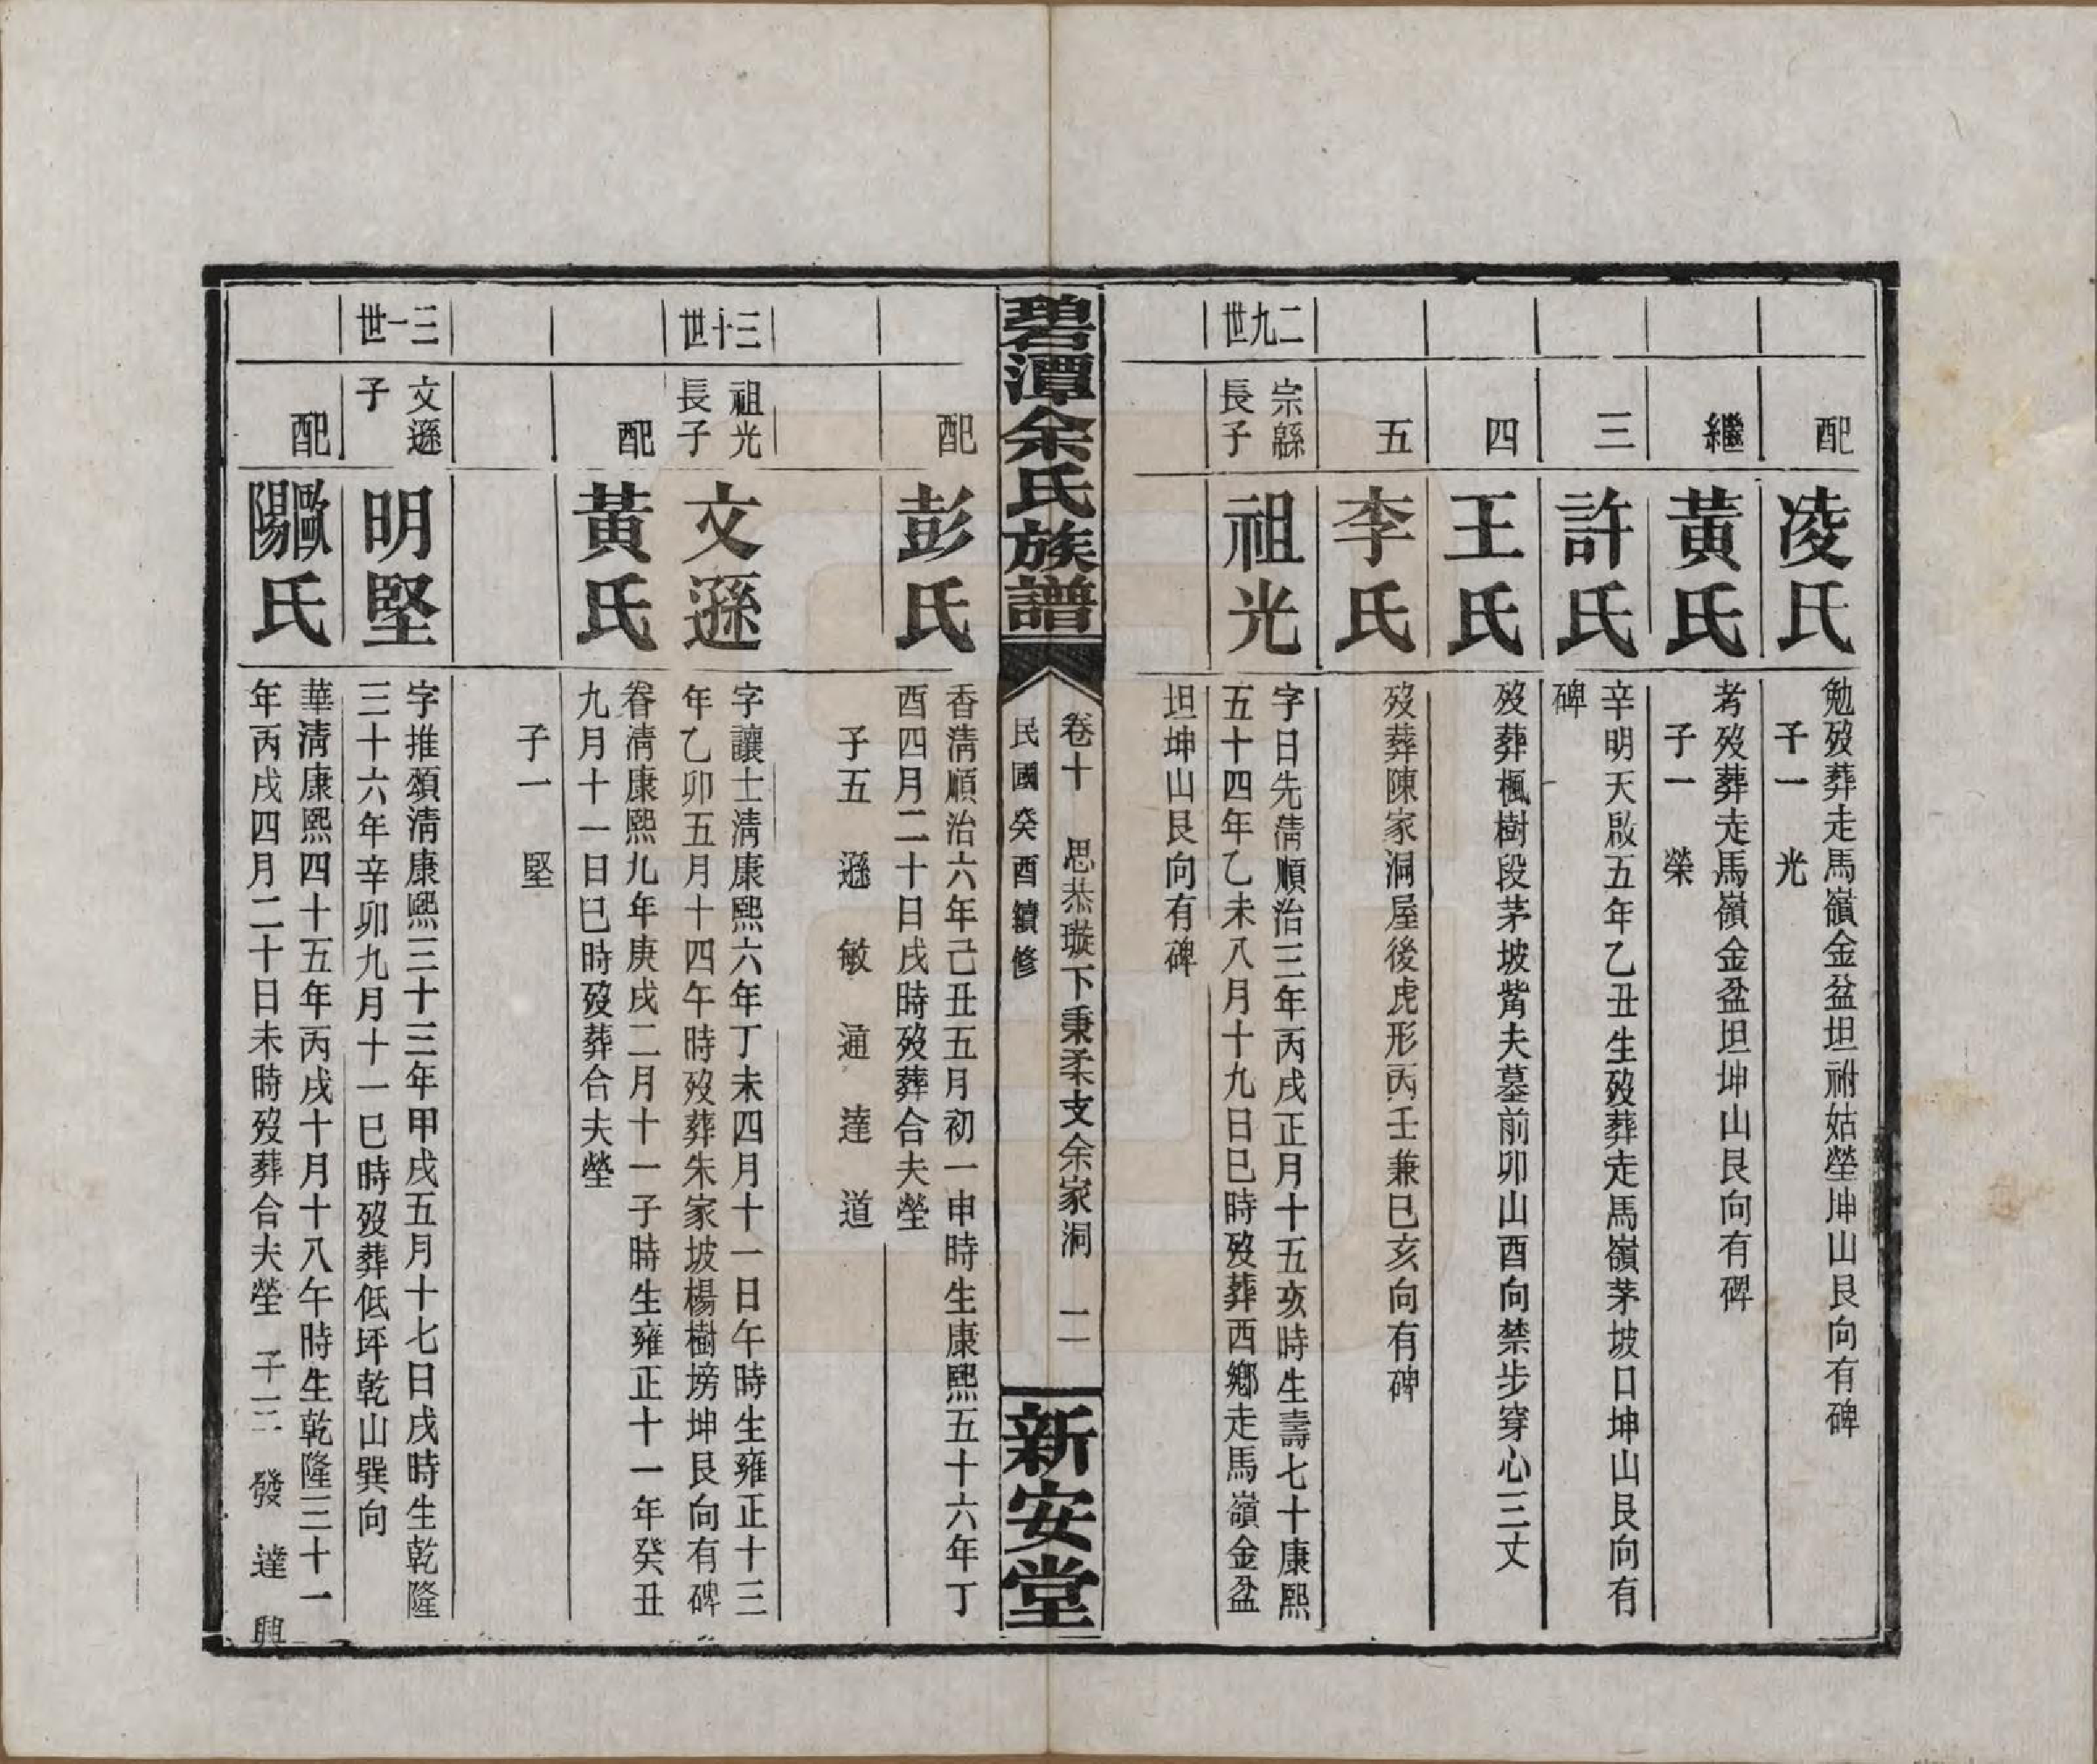 配
凌氏
勉歿葬走馬嶺金盆坦祔姑塋坤山艮向有碑
子一 光
繼
黃氏
考歿葬走馬嶺金盆坦坤山艮向有碑
子一 榮
三
許氏
辛明天啟五年乙丑生歿葬走馬嶺茅坡口坤山艮向有
碑
四
王氏
歿葬楓樹段茅坡嘴夫墓前卯山酉向禁步穿心三丈
五
李氏
歿葬陳家洞屋後虎形丙壬兼巳亥向有碑
二九世
宗緜
長子
祖光
字日先清順治三年丙戌正月十五亥時生壽七十康熙
五十四年乙未八月十九日巳時歿葬西鄉走馬嶺金盆
坦坤山艮向有碑
碧潭余氏族譜
卷十 思恭璇下秉柔支余家洞 二
民國癸酉續修
新安堂
配
彭氏
香清順治六年己丑五月初一申時生康熙五十六年丁
酉四月二十日戌時歿葬合夫塋
子五 遜 敏 通 達 道
三十世
祖光
長子
文遜
字讓士清康熙六年丁未四月十一日午時生雍正十三
年乙卯五月十四午時歿葬朱家坡楊樹塝坤艮向有碑
配
黃氏
眷清康熙九年庚戌二月十一子時生雍正十一年癸丑
九月十一日巳時歿葬合夫塋
子一 堅
三一世
文遜
子
明堅
字推頌清康熙三十三年甲戌五月十七日戌時生乾隆
三十六年辛卯九月十一巳時歿葬低坪乾山巽向
配
歐陽氏
華清康熙四十五年丙戌十月十八午時生乾隆三十一
年丙戌四月二十日未時歿葬合夫塋 子三 發 達 興